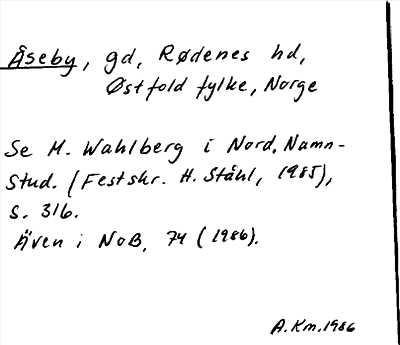 Åseby, gd, Rødenes hd,
Østfold fylke, Norge
Se M. Wahlberg i Nord. Namn-
Stud. (Festskr. H. Ståhl, 1985),
s. 316.
Även i NoB, 74 (1986).
A.Km.1986